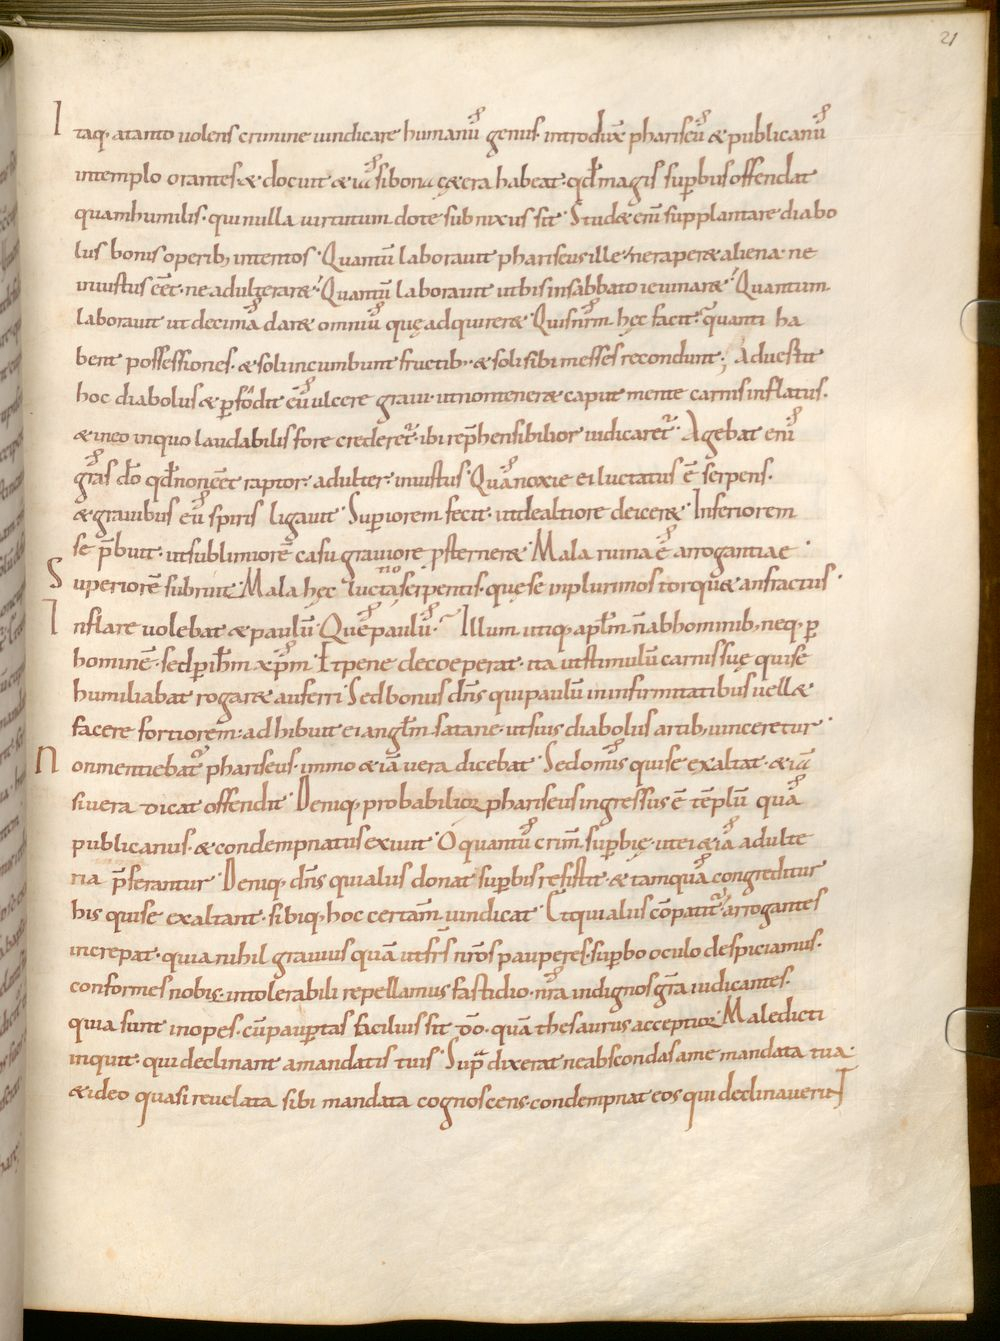 21
Itaq· atanto volens crimine vindicare humanū genus· introduxẽ phariseū & publicanū
intemplo orantes· & docuit & iā si bona cętera habeat· qđ magis supbus offendat
quam humilis· qui nulla virtutum dote subnixus sit· Stud& eni͞ supplantare diabo
lus bonis operib; intentos· Quantū laboravit phariseus ille· ne raper& aliena· ne
iniustus eēt· ne adulterar&· Quantū laboravit ut bis in sabbato ieiunar&· Quantum
laboravit ut decimā dar& omniū quę adquirer& Quis nr̄m hęc facit· quanti ha
bent possessiones· & soli incumbunt fructib; & soli sibi messes recondunt; Advestit
hoc diabolus & pfōdit eū ulcere gravi· ut non tener& caput mente carnis inflatus·
& in eo in quo laudabilis fore crederet̄· ibi rep̄hensibilior iudicaret̄· Agebat enī
grās dō qđ non eēt raptor· adulter· iniustus· Quā noxie ei luctatus ē serpens·
& gravibus eū spiris ligavit· Superiorem fecit· ut de altiore deicer& Inferiorem
se p̄buit· ut sublimiorē casu graviore psterner& Mala ruina ē arrogantiae·
Superiorē subruit· Mala hęc lucta serpentis· quę se in plurimos torqu& anfractus·
no
Inflare volebat & paulū· Quē paulū· Illum utiq· aplm̄ n̄ ab hominib; neq· p
hominē· sed p ih̄m xp̄m· Et pene decoeperat· ita ut stimulū carnis suę qui se
humiliabat rogar& auferri· Sed bonus dn̄s qui paulū in infirmitatibus vell&
facere fortiorem· adhibuit ei anglm̄ satane· ut suis diabolus artib; vinceretur·
Non mentiebat̄ phariseus· immo & iā vera dicebat· Sed omīs qui se exaltat· & iā
si vera dicat offendit· Deniq· probabilior phariseus ingressus ē tēplū quā
publicanus· & condempnatus exivit· O quantū crim̄ supbię· ut ei & iā adulte
ria p̄ferantur· Deniq· dn̄s qui alus donat supbis resistit· & tamquā congreditur
his qui se exaltant· sibiq· hoc certam̄ vindicat· Et qui alus cōpatit̄· arrogantes
increpat· quia nihil gravius quā ut frs̄ nr̄os pauperes· supbo oculo despiciamus·
conformes nobis· intolerabili repellamus fastidio· nr̄a indignos grā iudicantes·
quia sunt inopes· cū paupertas facilius sit dō· quā thesaurus acceptior· Maledicti
inquit· qui declinant a mandatis tuis· Supra dixerat ne abscondas a me mandata tua·
& ideo quasi revelata sibi mandata cognoscens· condempnat eos qui declinaverint